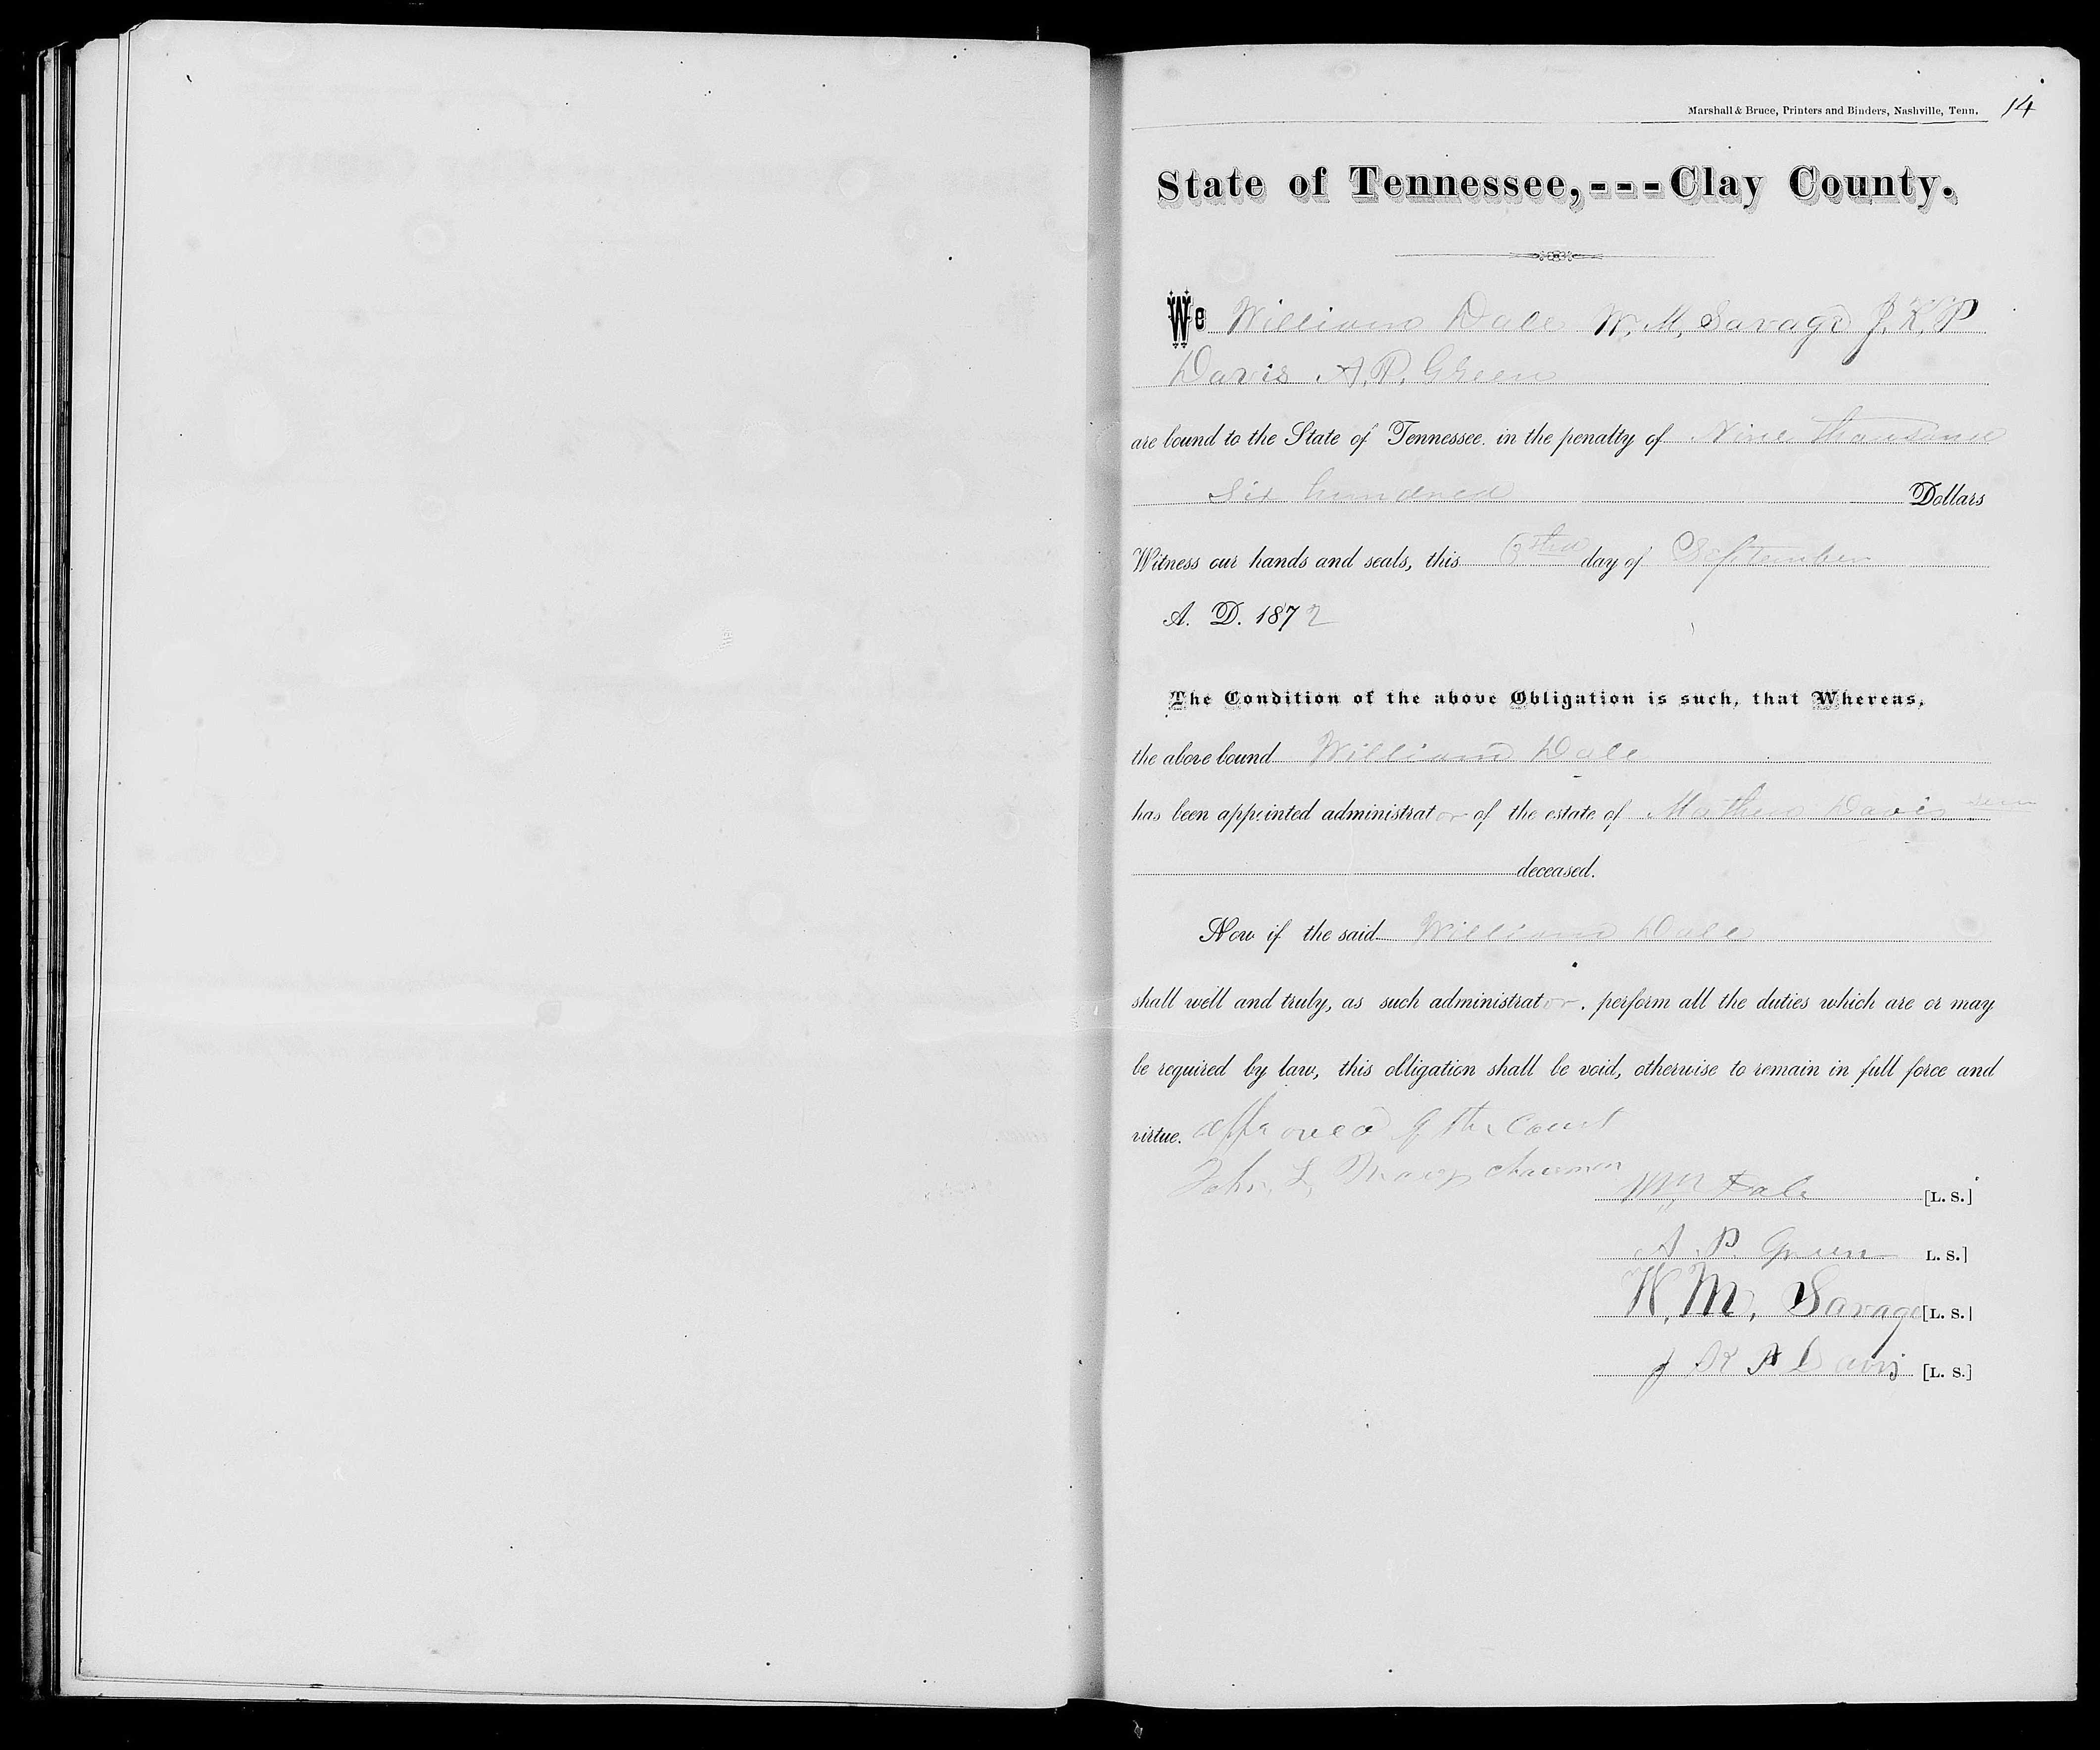 Marshall & Bruce, Printers and Binders, Nashville, Tenn. 14
State of Tennessee,---Clay County.
We William Dale W. M. Savage J. K. P
Davis A. P. Green
are bound to the State of Tennessee in the penalty of Nine thousand
Six hundred Dollars
Witness our hands and seals, this day of September
A. D. 1872
The Condition of the above Obligation is such, that Whereas,
the above bound William Dale
has been appointed administrator of the estate of Mathew Davis
deceased.
Now if the said William Dale
shall well and truly, as such administrator, perform all the duties which are or may
be required by law, this obligation shall be void, otherwise to remain in full force and
virtue. court
John L. chairman
Wm Dale [L. S.]
A. P. Green L. S.]
W. M. Savage [L. S.]
J K P Davis [L. S.]